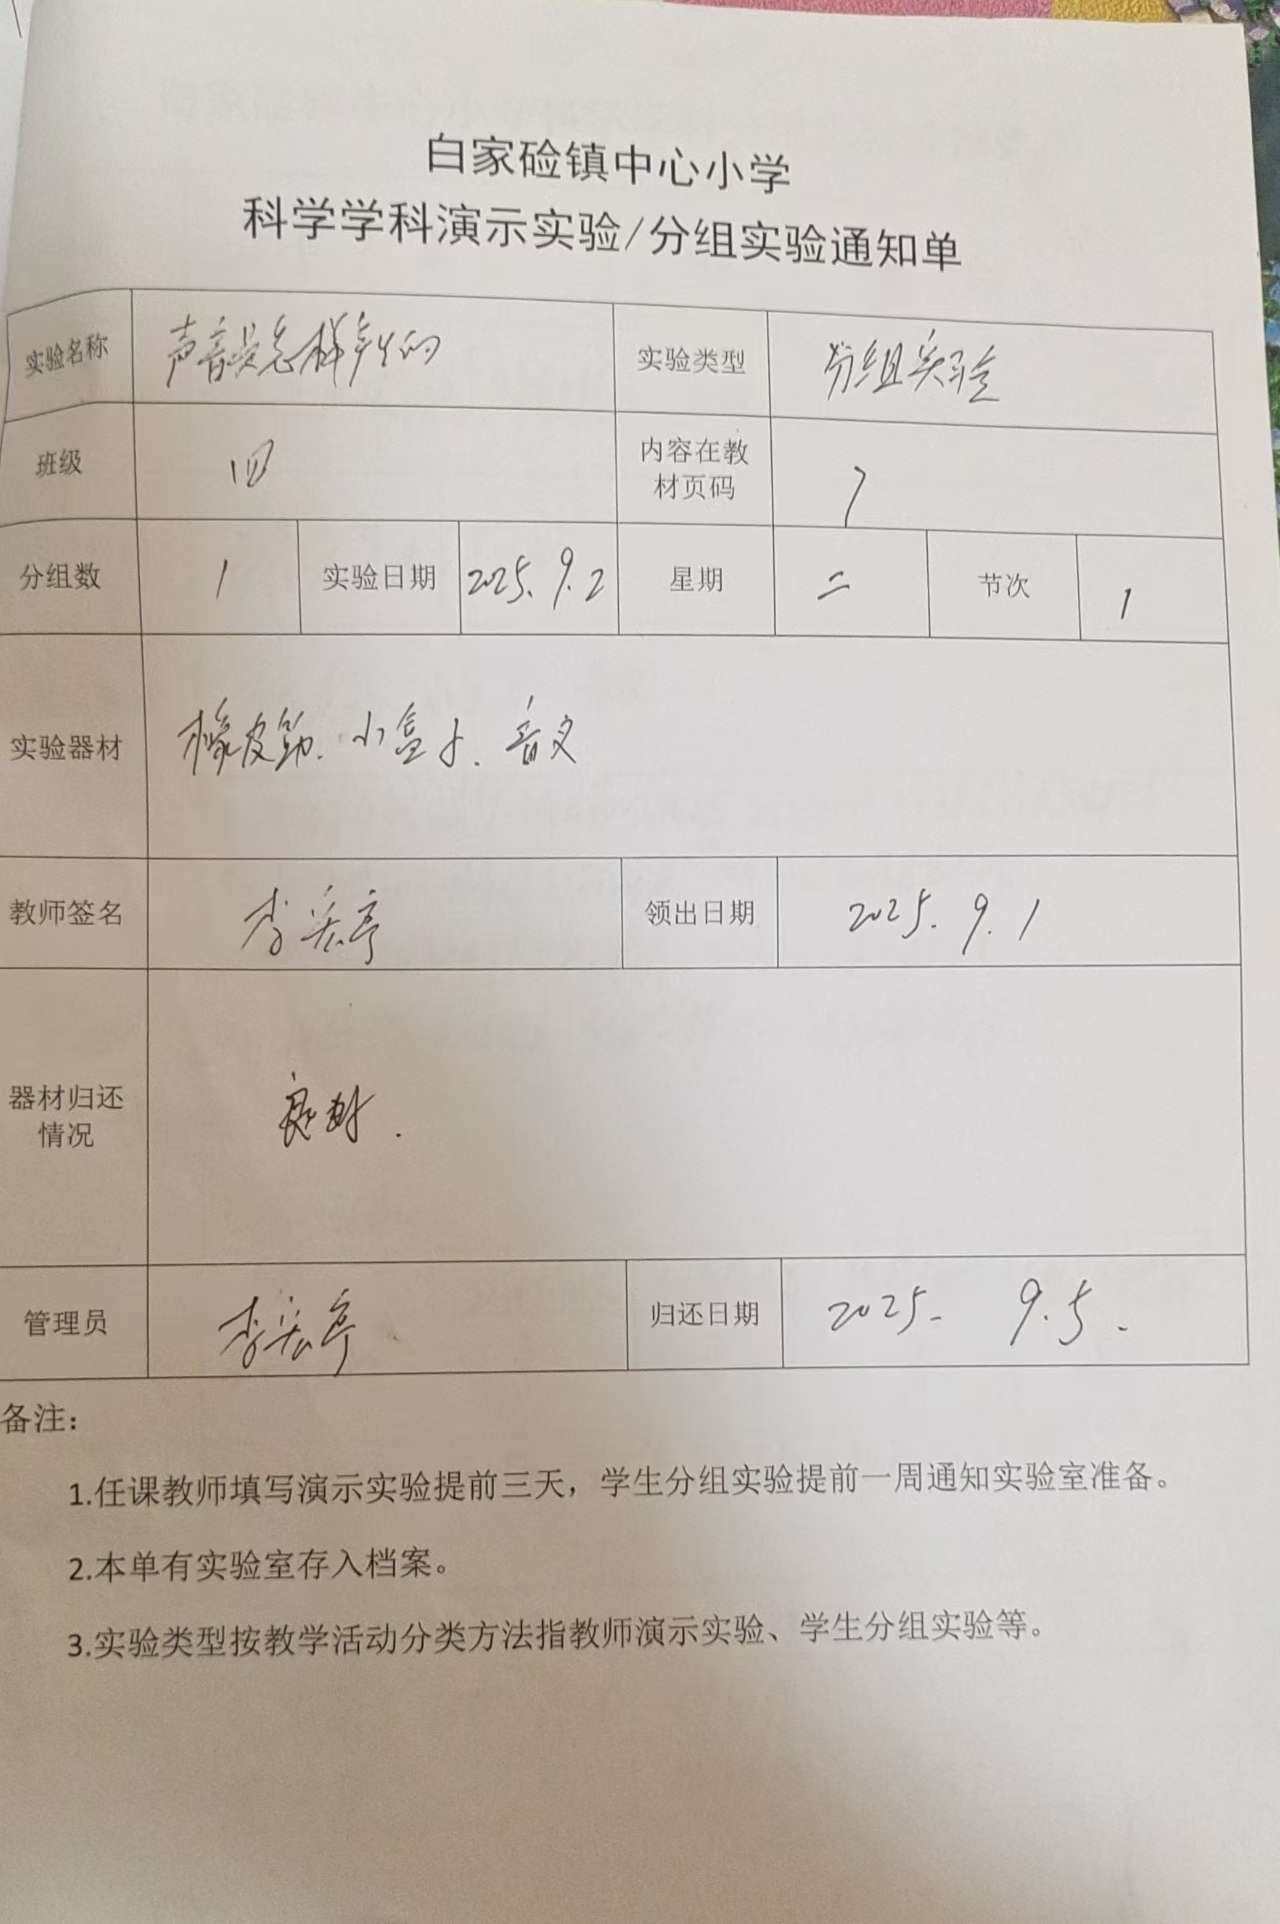 白家硷镇中心小学
科学学科演示实验/分组实验通知单
实验名称 声音是怎样产生的 实验类型 分组实验
班级 四 内容在教材页码 7
分组数 1 实验日期 2025.9.2 星期 二 节次 1
实验器材 橡皮筋、小盒子、音叉
教师签名 李 亭 领出日期 2025.9.1
器材归还情况 良好.
管理员 李 亭 归还日期 2025.9.5.
备注：
1.任课教师填写演示实验提前三天，学生分组实验提前一周通知实验室准备。
2.本单有实验室存入档案。
3.实验类型按教学活动分类方法指教师演示实验、学生分组实验等。